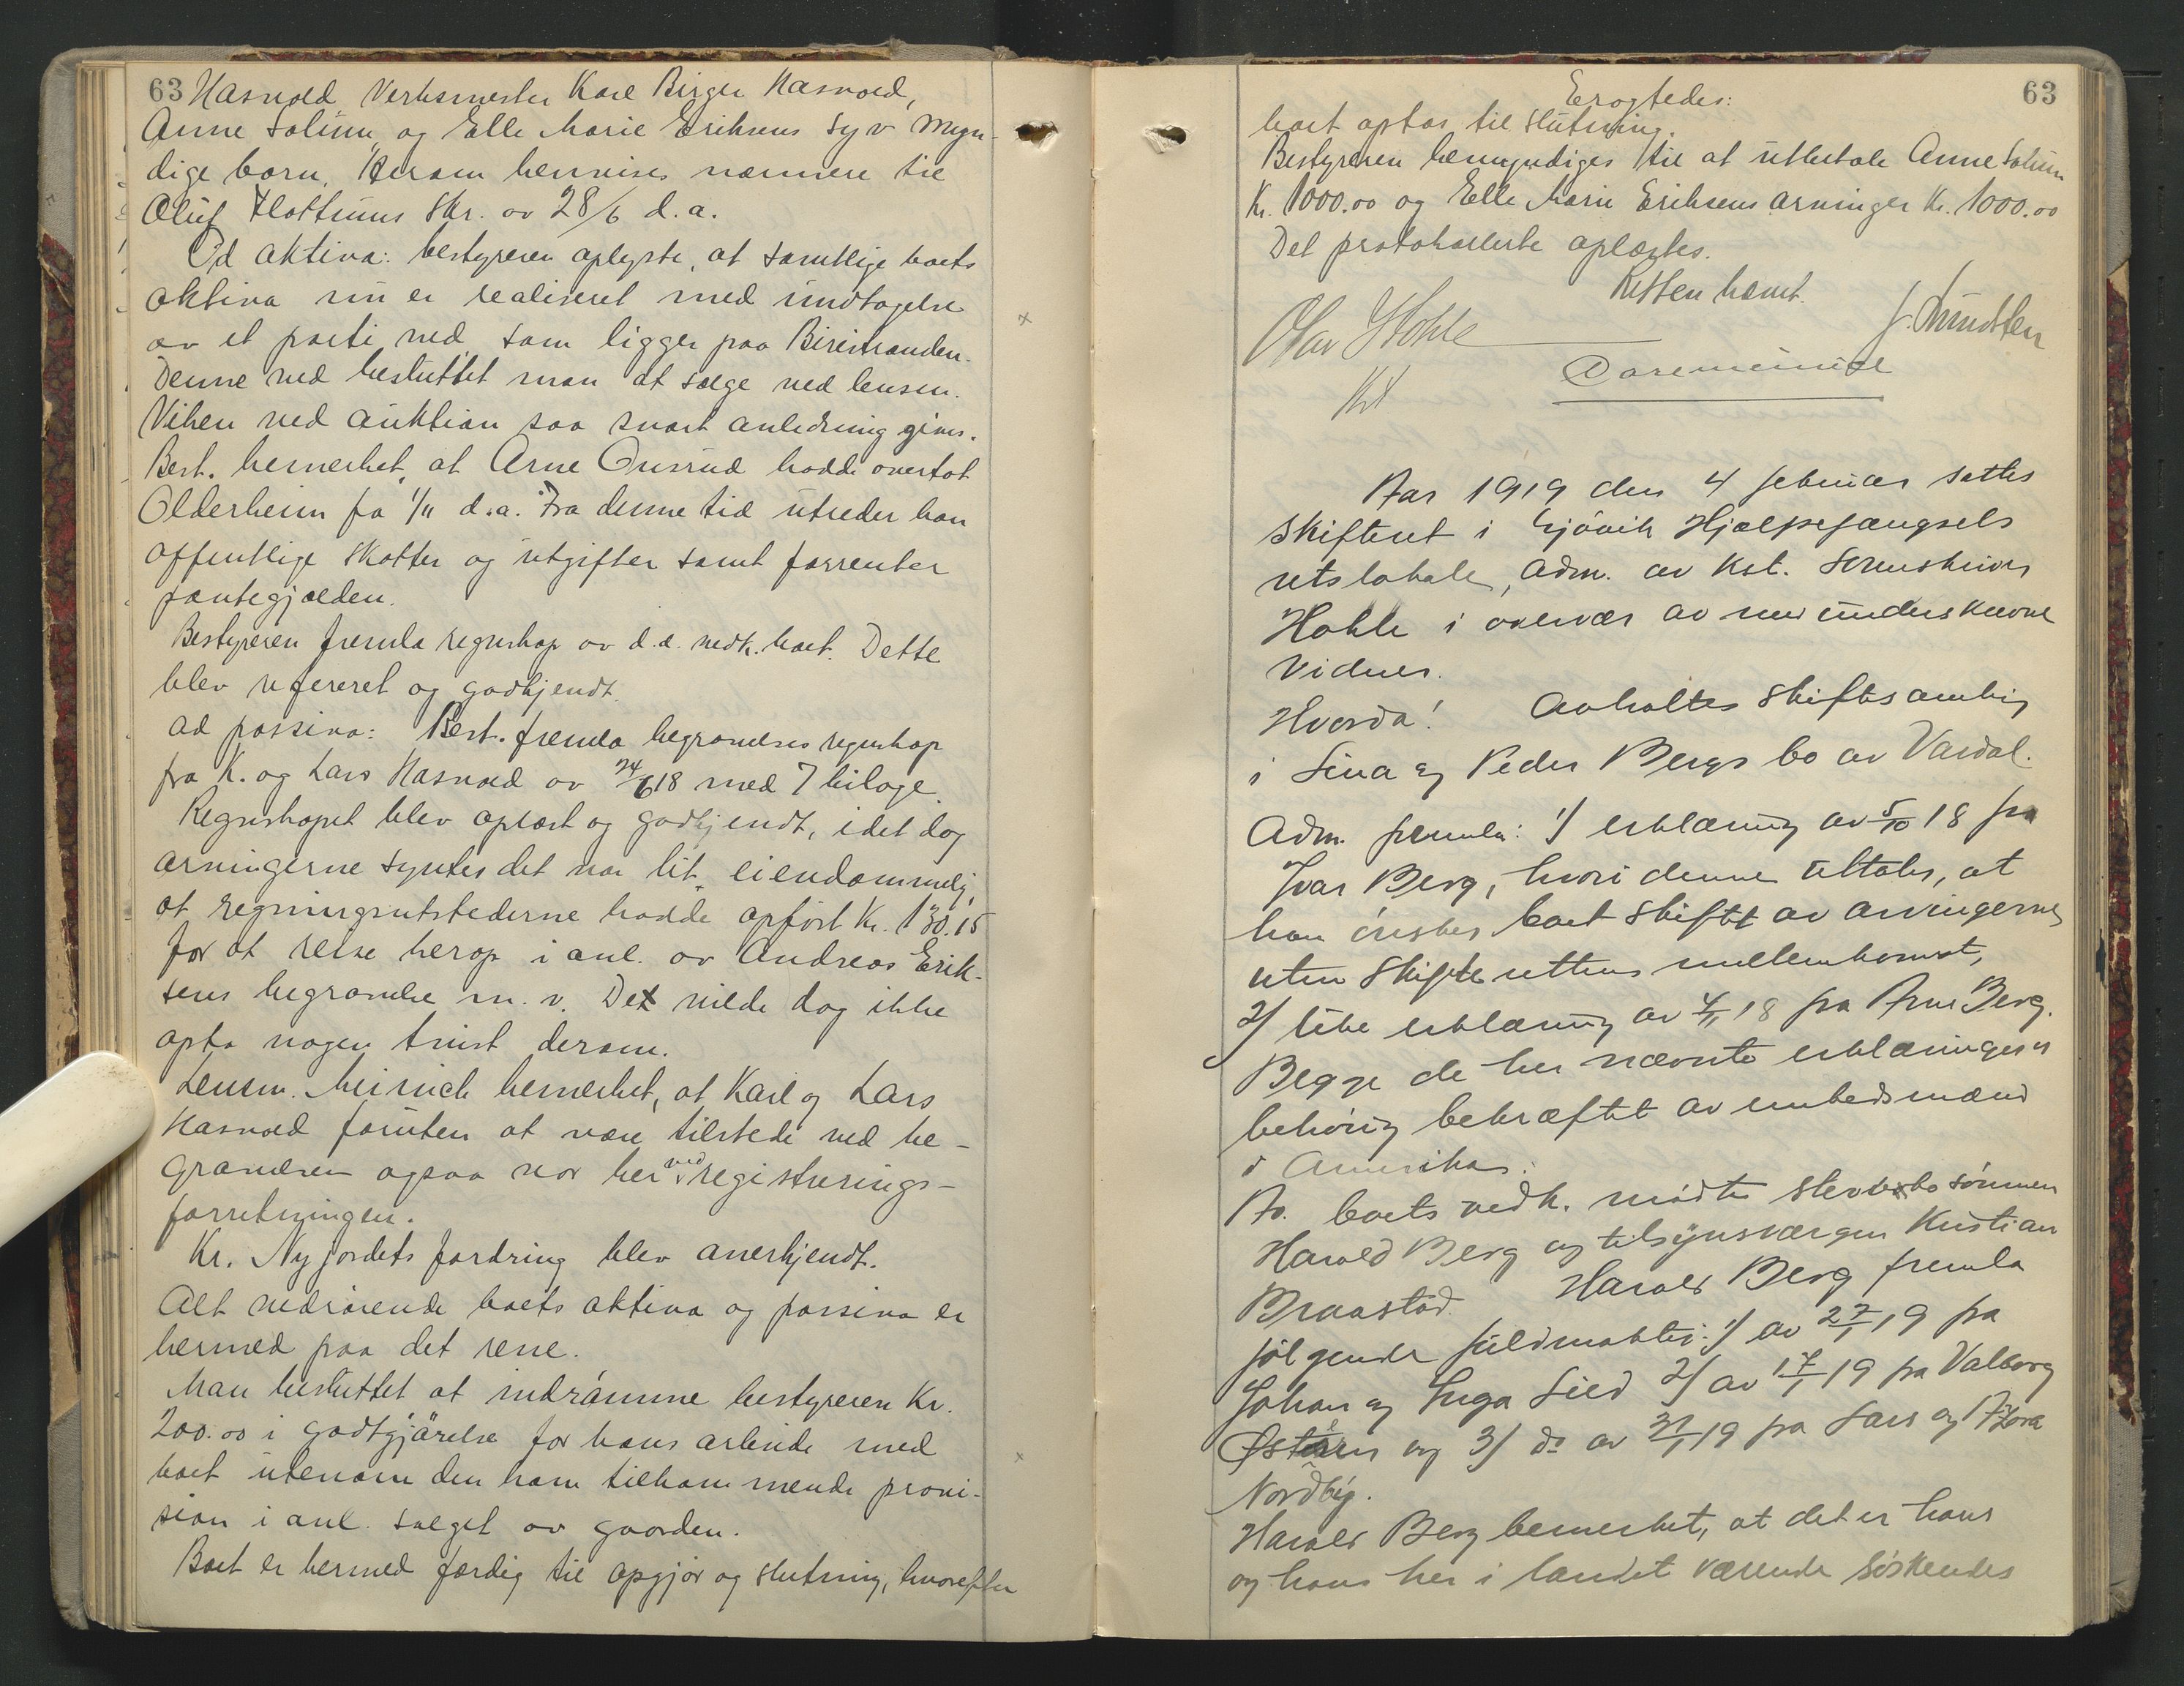 63
Hasvold, Verksmester Karl Birger Hasvold,
Anne Solum, og Elle Marie Eriksens syv myn-
dige barn. Herom henvises nærmere til
Oluf Flattums skr. av 28/6 d.a.
Ad aktiva: bestyreren oplyste, at samtlige boets
aktiva nu er realiseret med undtagelse
av et parti ved som ligger paa Biristranden.
Denne ved besluttet man at sælge ved lensm.
Viken ved auktion saa snart anledning gives.
Best. bemerket, at Arne Onsrud hadde overtat
Olderheim fra 1/11 d.a. Fra denne tid utreder han
offentlige skatter og utgifter samt forrenter
pantegjælden.
Bestyreren fremla regnskap av d.d. vedk. boet. Dette
blev refereret og godkjendt.
ad passiva: Best. fremla begravelses regnskap
fra K. og Lars Hasvold av 24/6 18 med 7 bilage.
Regnskapet blev oplæst og godkjendt, idet dog
arvingerne syntes det var lit eiendommelig,
at regningsutstederne hadde opført Kr. 130.15
for at reise herop i anl. av Andreas Erik-
sens begravelse m.v. Det vilde dog ikke
opta nogen tvist derom.
Lensm. Meinich bemerket, at Karl og Lars
Hasvold foruten at være tilstede ved be-
gravelsen ogsaa var her ved registrerings-
forretningen.
Kr. Nyjordets fordring blev anerkjendt.
Alt vedrørende boets aktiva og passiva er
hermed paa det rene.
Man besluttet at indrømme bestyreren Kr.
200.00 i godtgjørelse for hans arbeide med
boet utenom den ham tilkommende provi-
sion i anl. salget av gaarden.
Boet er hermed færdig til opgjør og slutning, hvorefter
63
Eragtedes:
boet optas til slutning.
Bestyreren bemyndiges til at utbetale Anne Solum
Kr. 1000.00 og Elle Marie Eriksens arvinger Kr. 1000.00
Det protokollerte oplæstes.
Retten hævet.
Olav Hohle
Kst
Aar 1919 den 4 februar sattes
skifteret i Gjøvik Hjælpefængsels
retslokale, adm. av kst. Sorenskriver
Hohle i overvær av medunderskrevne
vidner.
Hvorda! Avholdtes skiftesamling
i Lina og Peder Bergs bo av Vardal.
Adm. fremla: 1/ erklæring av 5/10 18 fra
Ivar Berg, hvori denne uttaler, at
han ønsker boet skiftet av arvingerne
uten skifterettens mellemkomst,
2/ like erklæring av 4/11 18 fra Arne Berg.
Begge de her nævnte erklæringer er
behørig bekræftet av embedsmænd
i Amerika.
Av boets vedk. møtte stervbosønnen
Harald Berg og tilsynsværgen Kristian
Braastad. Harald Berg fremla
følgende fuldmakter: 1/ av 27/1 19 fra
Johan og Inga Lied 2/ av 17/1 19 fra Valborg
og 3/ do av 31/1 19 fra Lars og Thora
Nordby.
Harald Berg bemerket, at det er hans
og hans her i landet værende søskendes